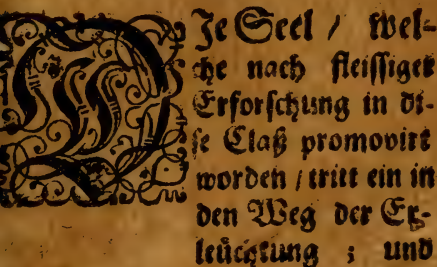 DJe Seel / wel-
che nach fleissiger
Erforschung in di-
se Claß promovirt
worden / tritt ein in
den Weg der Er-
leüchtung ; und